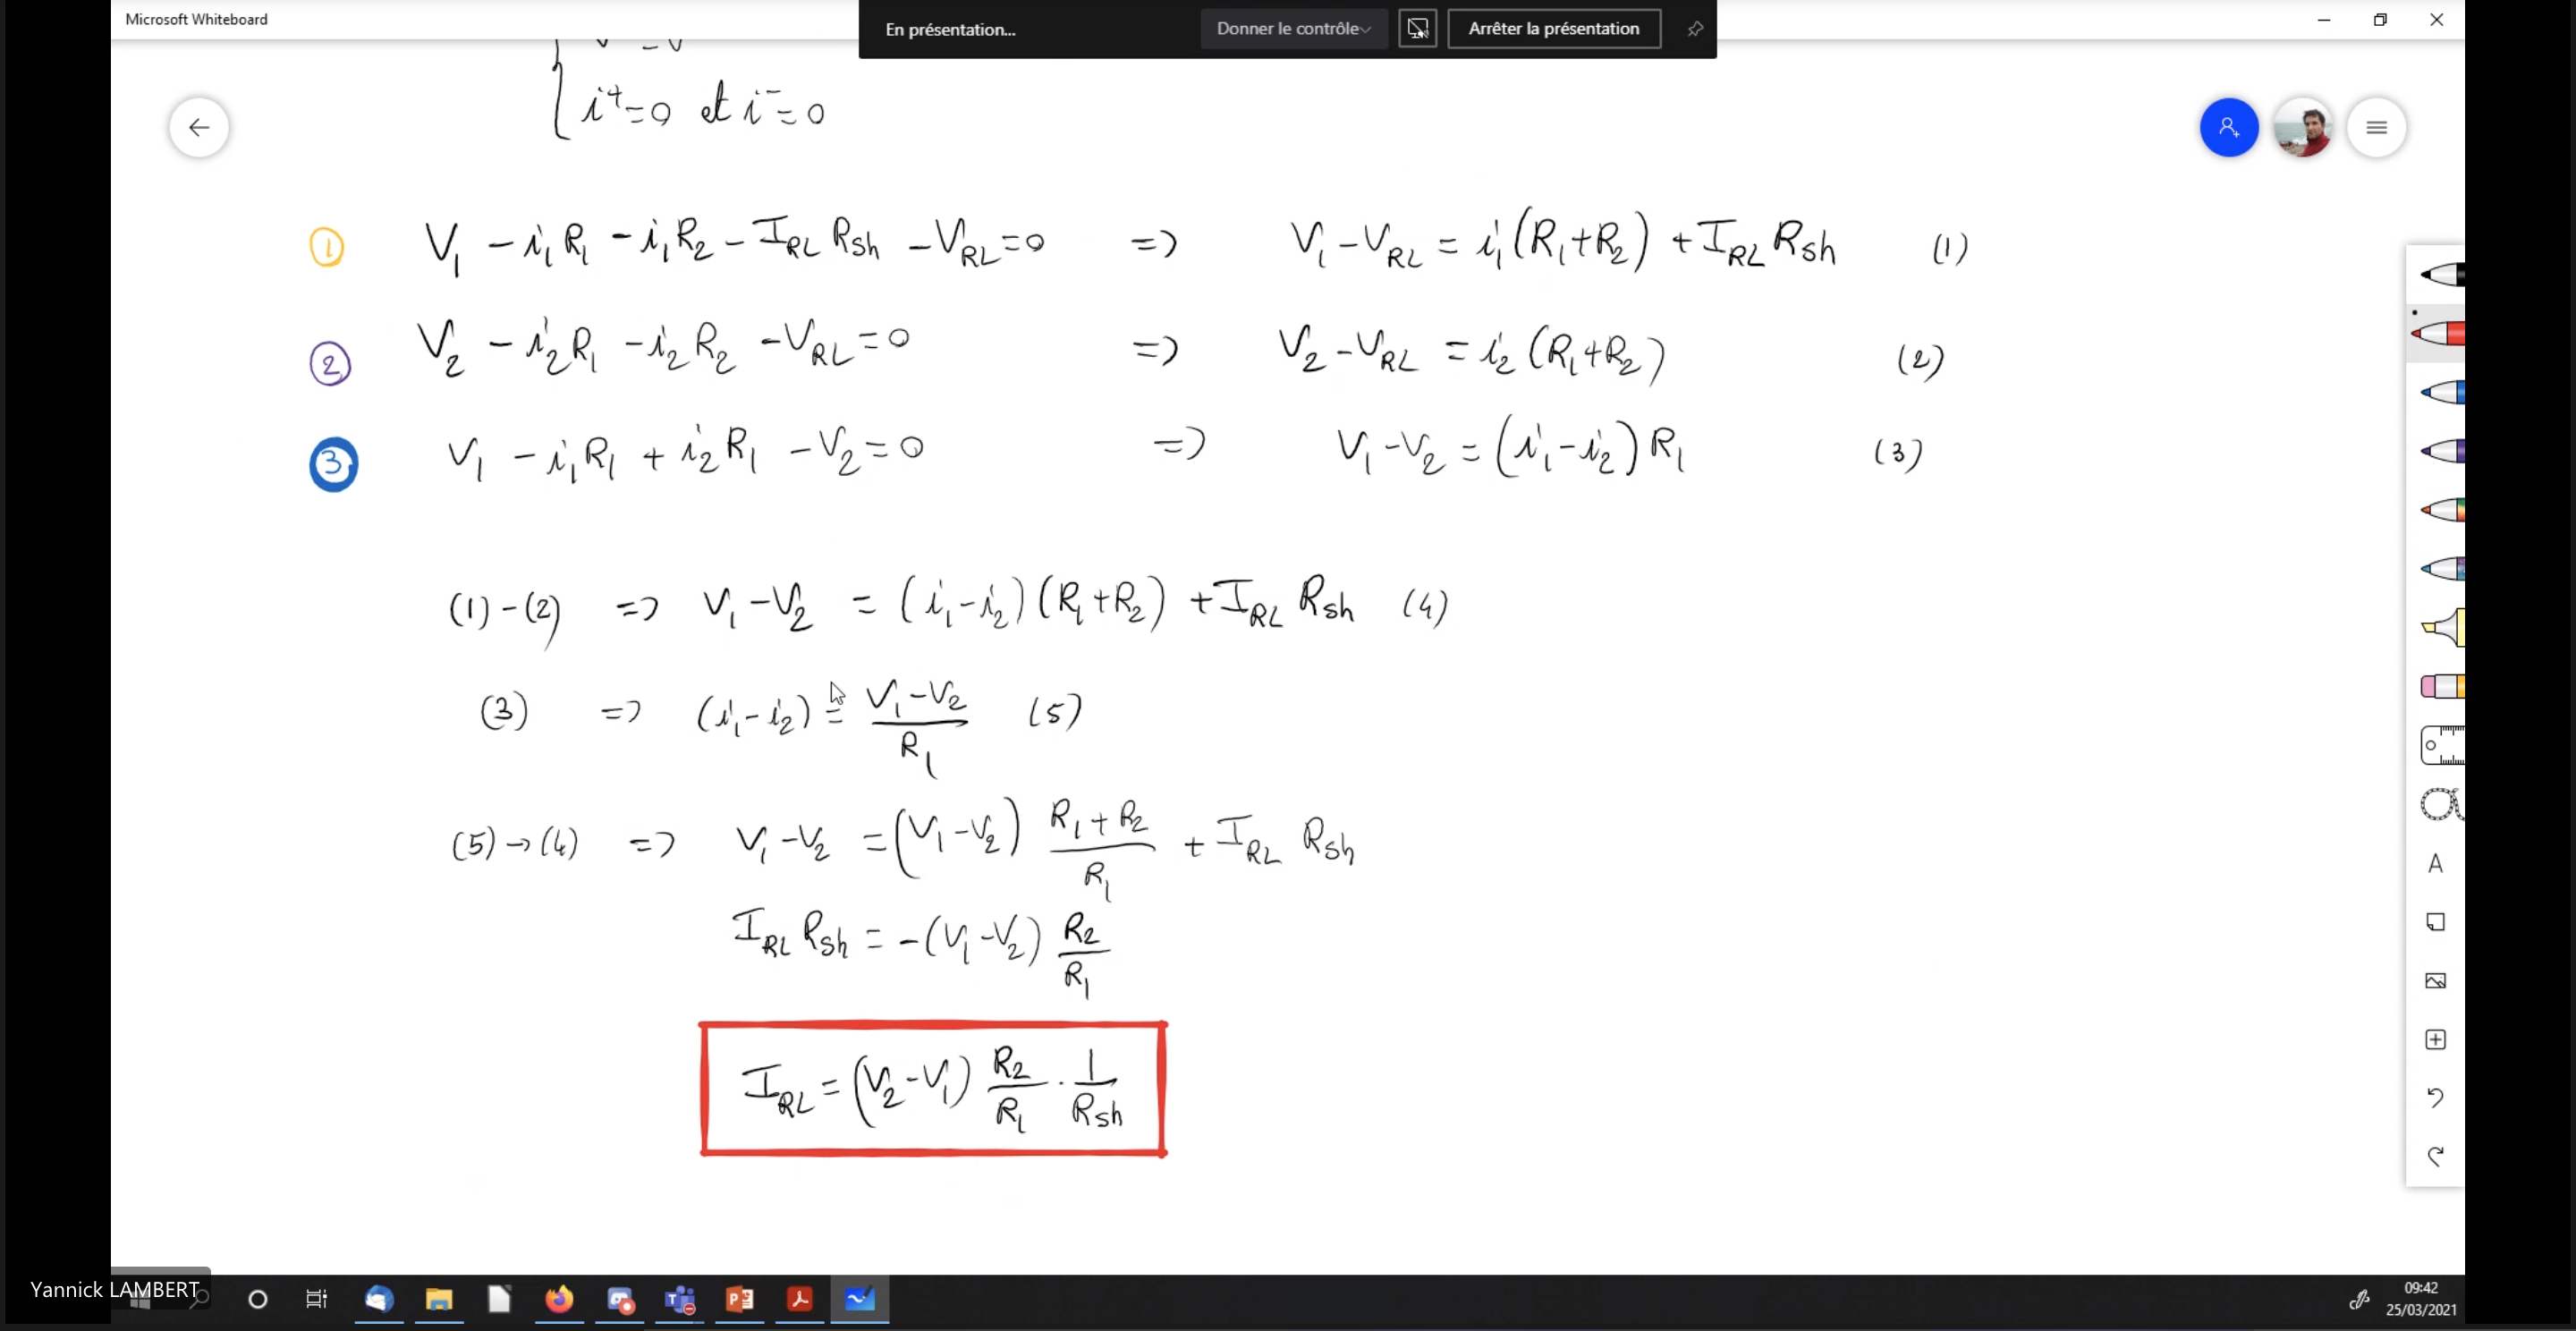 Microsoft Whiteboard
En présentation...
Donner le contrôle
Arrêter la présentation
i⁺=0 et i⁻=0
① V₁ - i₁R₁ - i₁R₂ - I_RL R_sh - V_RL = 0 => V₁ - V_RL = i₁(R₁+R₂) + I_RL R_sh (1)
② V₂ - i₂R₁ - i₂R₂ - V_RL = 0 => V₂ - V_RL = i₂(R₁+R₂) (2)
③ V₁ - i₁R₁ + i₂R₁ - V₂ = 0 => V₁ - V₂ = (i₁ - i₂) R₁ (3)
(1) - (2) => V₁ - V₂ = (i₁ - i₂)(R₁+R₂) + I_RL R_sh (4)
(3) => (i₁ - i₂) = (V₁ - V₂)/R₁ (5)
(5) → (4) => V₁ - V₂ = (V₁ - V₂) (R₁+R₂)/R₁ + I_RL R_sh
I_RL R_sh = -(V₁ - V₂) R₂/R₁
I_RL = (V₂ - V₁) R₂/R₁ · 1/R_sh
A
Yannick LAMBERT
09:42
25/03/2021